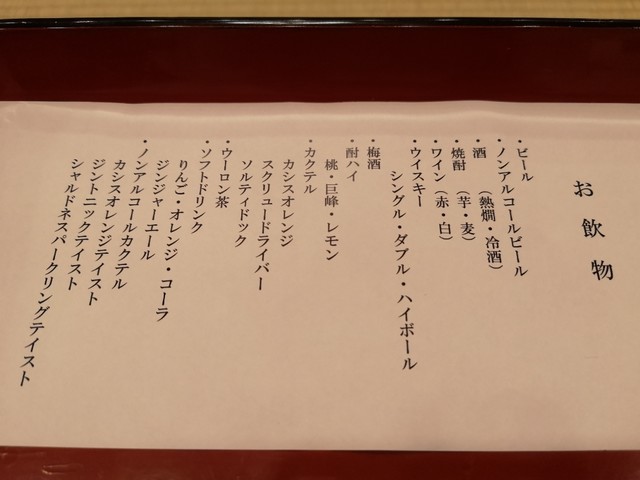 お飲物
・ビール
・ノンアルコールビール
・酒　(熱燗・冷酒)
・焼酎　(芋・麦)
・ワイン(赤・白)
・ウイスキー
シングル・ダブル・ハイボール
・梅酒
・酎ハイ
桃・巨峰・レモン
・カクテル
カシスオレンジ
スクリュードライバー
ソルティドック
・ウーロン茶
・ソフトドリンク
りんご・オレンジ・コーラ
ジンジャーエール
・ノンアルコールカクテル
カシスオレンジテイスト
ジントニックテイスト
シャルドネスパークリングテイスト